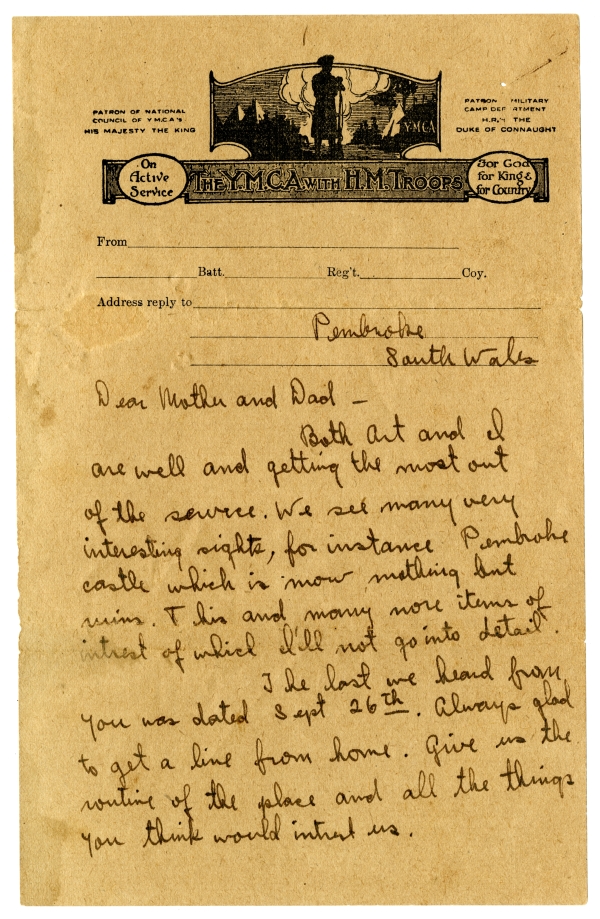 PATRON OF NATIONAL
COUNCIL OF Y.M.C.A'S
HIS MAJESTY THE KING
Y·M·C·A
PATRON MILITARY
CAMP DEPARTMENT
H.R.H THE
DUKE OF CONNAUGHT
On
Active
Service
THE Y.M.C.A. WITH H.M. TROOPS
For God
for King &
for Country
From
Batt. Reg't. Coy.
Address reply to
Pembroke
South Wales
Dear Mother and Dad —
Both Art and I
are well and getting the most out
of the service. We see many very
interesting sights, for instance Pembroke
castle which is now nothing but
ruins. This and many more items of
intrest of which I'll not go into detail.
The last we heard from
you was dated Sept 26th. Always glad
to get a line from home. Give us the
routine of the place and all the things
you think would intrest us.